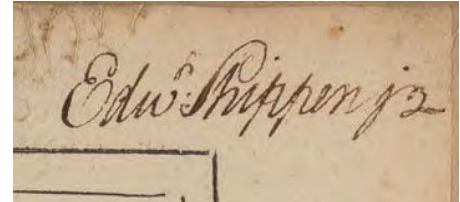 Edwd. Shippen jr